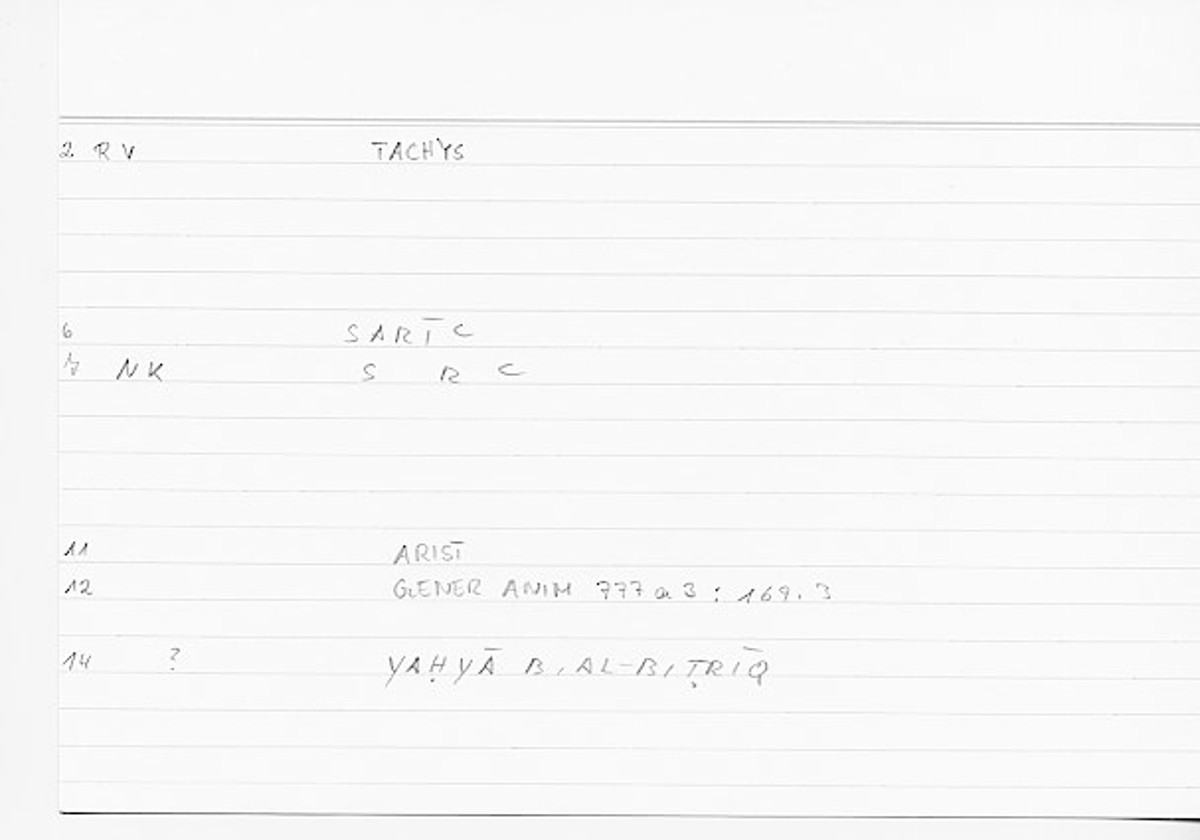 2 RV TACHYS
6 SARĪC
7 NK S R C
11 ARIST
12 GENER ANIM 777a3 : 169.3
14 ? YAḤYĀ B. AL-BIṬRĪQ